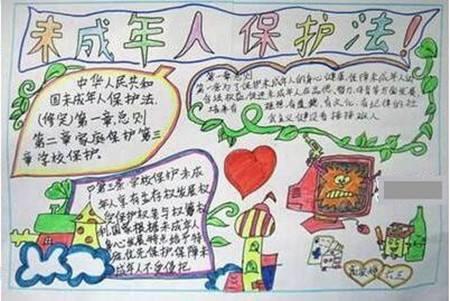 未成年人保护法!
中华人民共和
国未成年人保护法.
(修定)第一章总则
第二章家庭保护第三
章学校保护。
第一章总则
第一条为了保护未成年人的身心健康,保障未成年人的
合法权益,促进未成年人在品德、智力、体育等方面全面发展,
培养有 理想有道德,有文化、有纪律的社
会主义建设者接接班人
第三条学校保护未成
年人享有生存权发展权
受保护权参与权
国家根据未成年人
身心发展特点给予特
优先保护保障未
成年人不受侵犯
六三